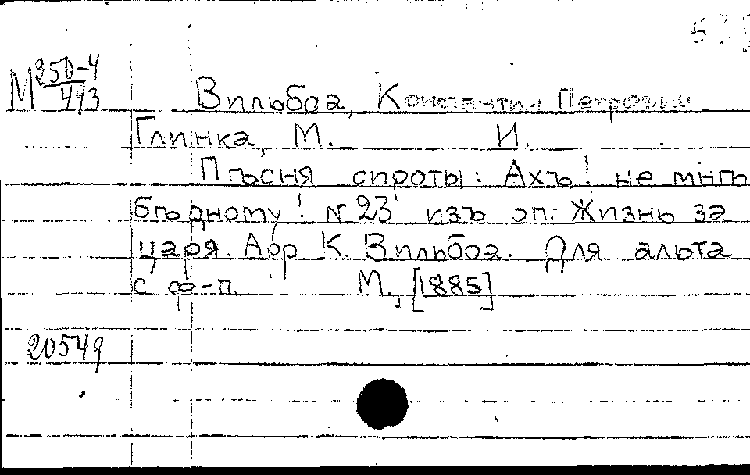 М 250-4
443
Вильбоа, Константин Петрович
Глинка, М. И.
Пѣсня сироты: Ахъ! не мнѣ
бѣдному! № 23 изъ оп: Жизнь за
царя. Арр К. Вильбоа. Для альта
с ф-п. М., [1885]
20549